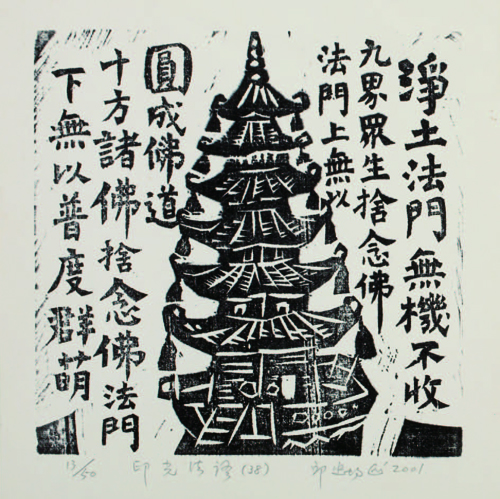 淨土法門無機不收
九界眾生捨念佛
法門上無以
圓成佛道
十方諸佛捨念佛法門
下無以普度群萌
13/50 印光法語(28) 2001